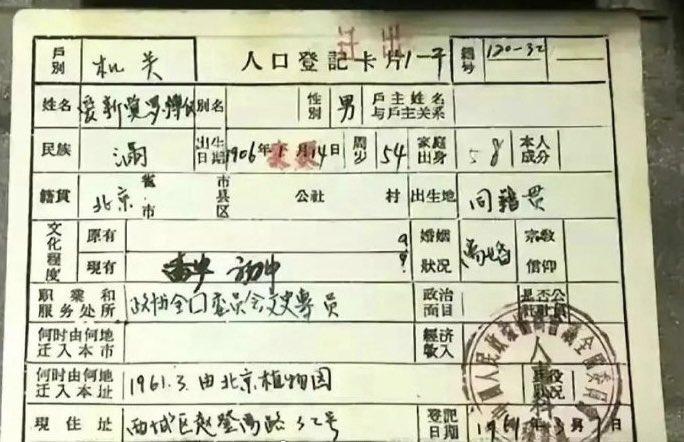 迁出
户别 机关 人口登記卡片 1-子 編号 120-32
姓名 爱新覚罗 别名 性别 男 戶主姓名与戶主关系
民族 滿 出生日期 1906年 月14日 周岁 54 家庭出身 本人成分
籍貫 北京 省市 市县区 公社 村 出生地 同籍贯
文化程度 原有 婚姻狀况 离婚 宗教信仰
現有 初中
职業和服务处所 政协全囗委员会文史專員 政治面目 是否公社社員
何时由何地迁入本市 经济收入
何时由何地迁入本址 1961.3.由北京植物园
現住址 西城区 登禹路32号 登記日期 1961年3月
人事科